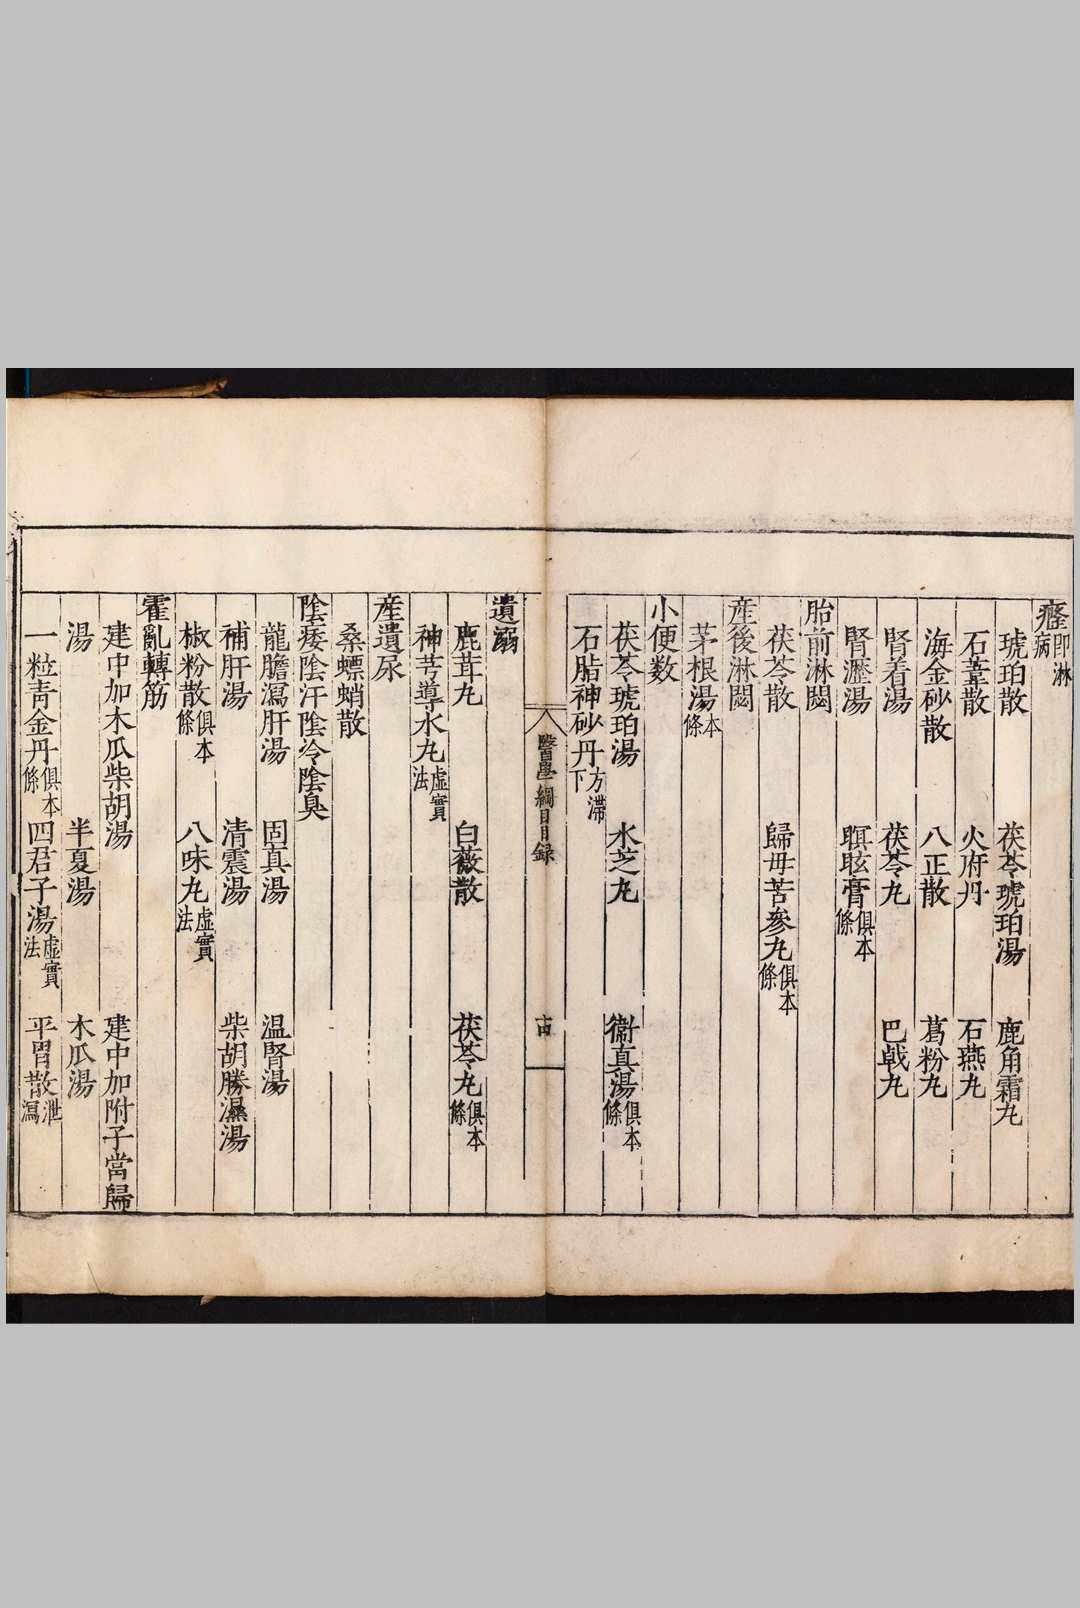 癃即淋病
琥珀散 茯苓琥珀湯 鹿角霜丸
石葦散 火府丹 石燕丸
海金砂散 八正散 葛粉丸
腎着湯 茯苓丸 巴戟丸
腎瀝湯 瞑眩膏俱本條
胎前淋閟
茯苓散 歸母苦參丸俱本條
產後淋閟
茅根湯本條
小便數
茯苓琥珀湯 水芝丸 衛真湯俱本條
石脂神砂丹方滯下
醫學綱目目録
十四
遺溺
鹿茸丸 白薇散 茯苓丸俱本條
神芎導水丸虛實法
產遺尿
桑螵蛸散
陰痿陰汗陰冷陰臭
龍膽瀉肝湯 固真湯 温腎湯
補肝湯 清震湯 柴胡勝濕湯
椒粉散俱本條 八味丸虛實法
霍亂轉筋
建中加木瓜柴胡湯 建中加附子當歸
湯 半夏湯 木瓜湯
一粒青金丹俱本條 四君子湯虛實法 平胃散泄瀉